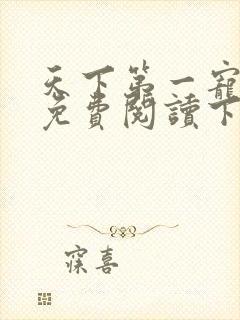 天下第一寵
免費閱讀下
寐喜